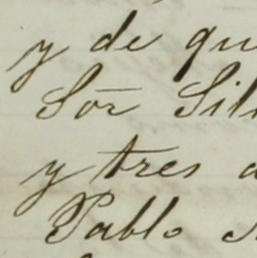 y de qu
Sōr Sil
y tres a
Pablo